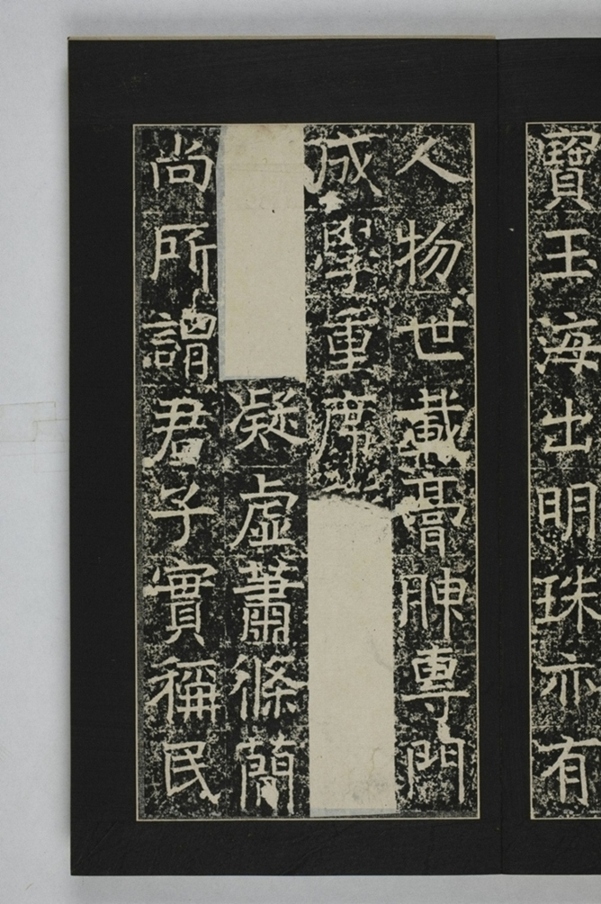 寶玉海出明珠亦有
人物世載膏腴專門
成學重席
凝虛蕭條簡
尚所謂君子實稱民